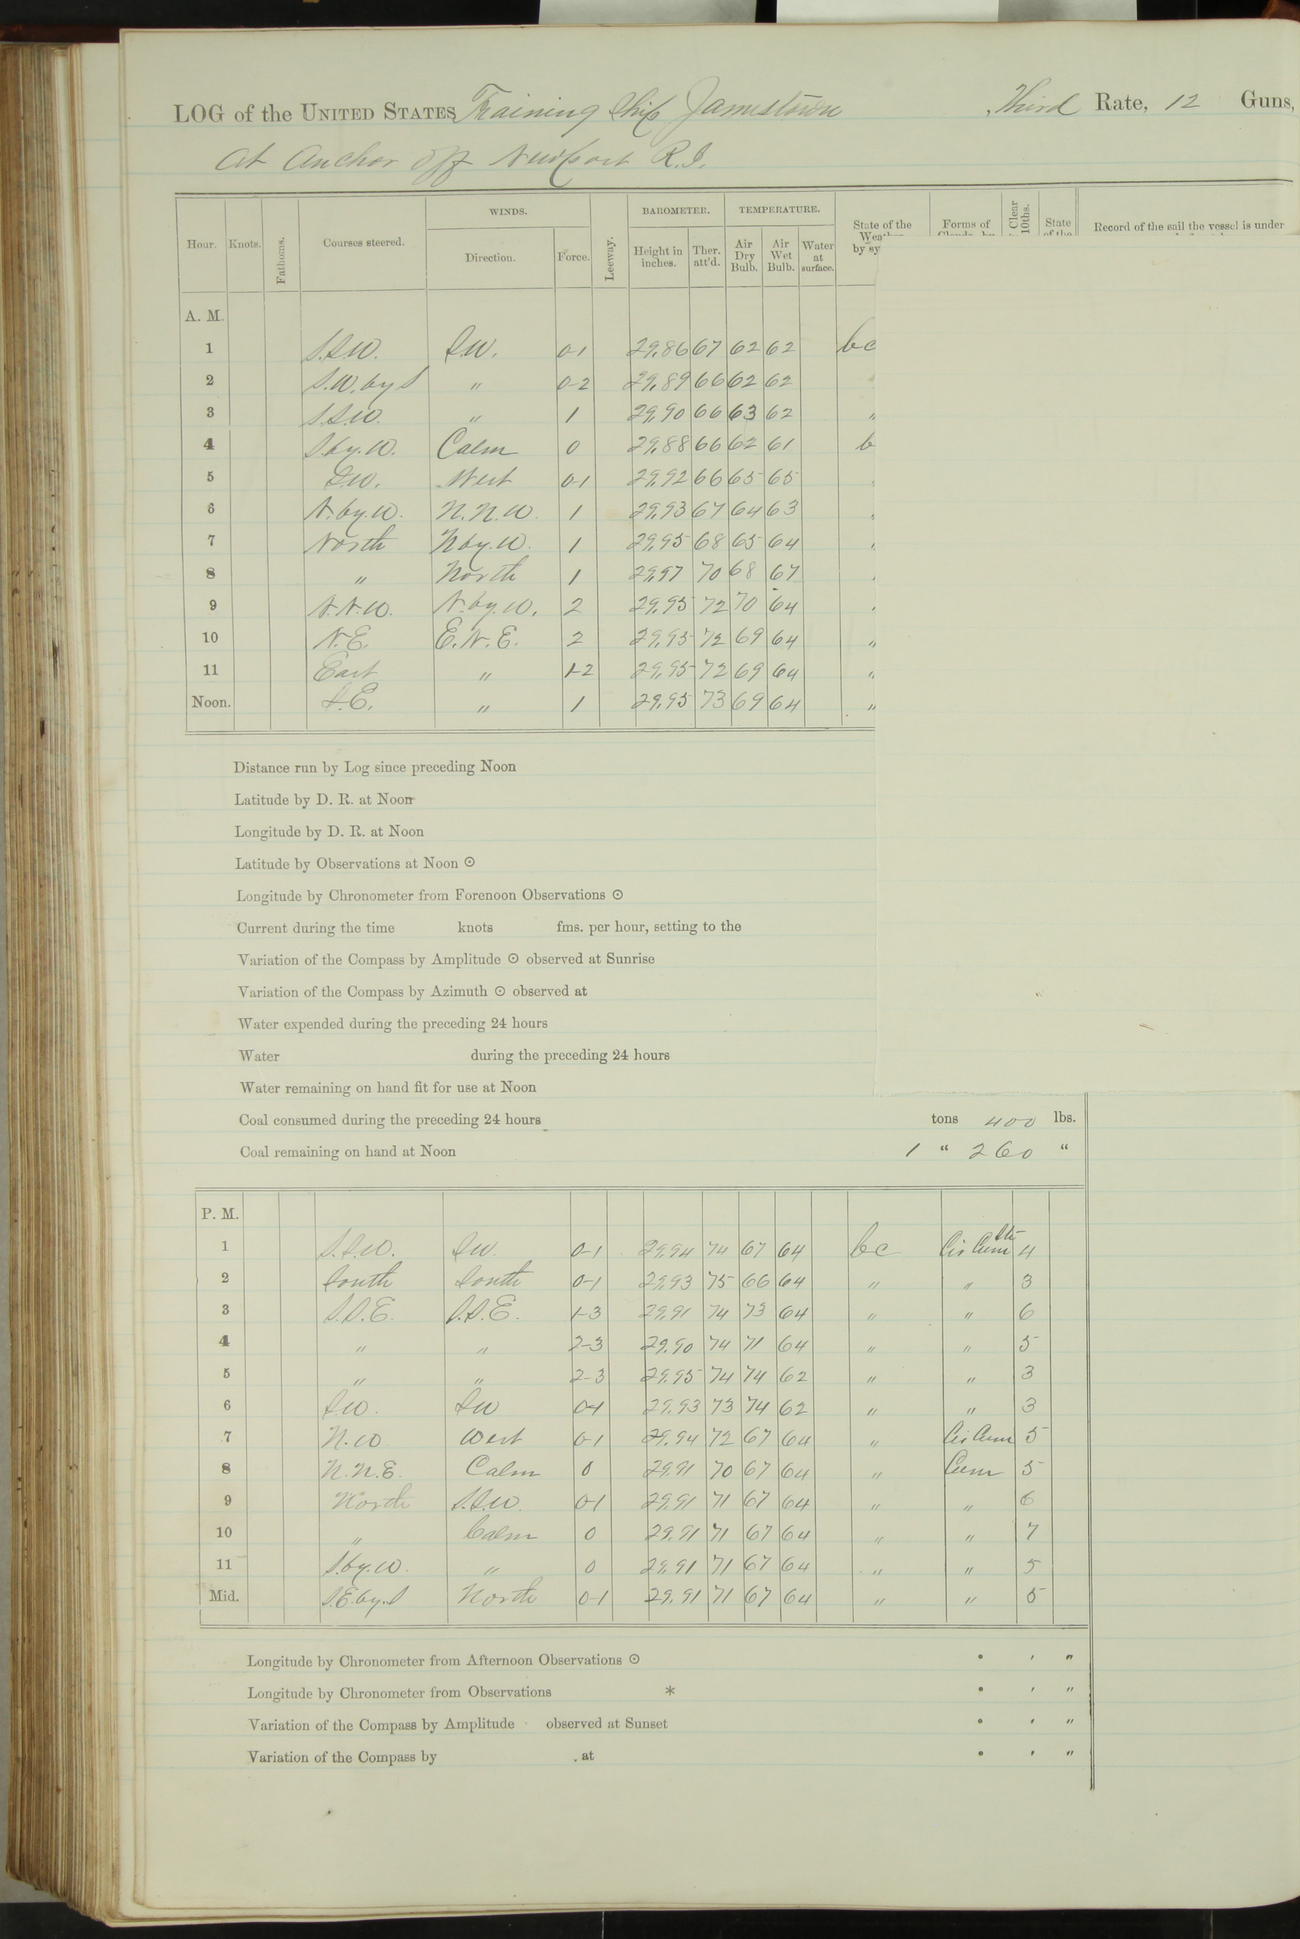 LOG of the UNITED STATES Training Ship Jamestown Third Rate, 12 Guns,
At Anchor off Newport R.I.
WINDS. BAROMETER. TEMPERATURE.
Hour. Knots. Fathoms. Courses steered. Direction. Force. Leeway. Height in inches. Ther. att'd. Air Dry Bulb. Air Wet Bulb. Water at surface. State of the by sy Forms of Clear 10ths. State Record of the sail the vessel is under
A. M.
1 S.S.W. S.W. 0-1 29.86 67 62 62 bc
2 S.W. by S " 0-2 29.89 66 62 62
3 S.S.W. " 1 29.90 66 63 62 "
4 S by. W. Calm 0 29.88 66 62 61 b
5 S.W. West 0-1 29.92 66 65 65
6 N. by. W. N.N.W. 1 29.93 67 64 63
7 North N by. W. 1 29.95 68 65 64
8 " North 1 29.97 70 68 67
9 N.N.W. N. by. W. 2 29.95 72 70 64
10 N.E. E.N.E. 2 29.95 72 69 64 "
11 East " 1-2 29.95 72 69 64 "
Noon. S.E. " 1 29.95 73 69 64 "
Distance run by Log since preceding Noon
Latitude by D. R. at Noon
Longitude by D. R. at Noon
Latitude by Observations at Noon ⊙
Longitude by Chronometer from Forenoon Observations ⊙
Current during the time knots fms. per hour, setting to the
Variation of the Compass by Amplitude ⊙ observed at Sunrise
Variation of the Compass by Azimuth ⊙ observed at
Water expended during the preceding 24 hours
Water during the preceding 24 hours
Water remaining on hand fit for use at Noon
Coal consumed during the preceding 24 hours tons 400 lbs.
Coal remaining on hand at Noon 1 " 260 "
P. M.
1 S.S.W. S.W. 0-1 29.94 74 67 64 bc Cir Cum Str 4
2 South South 0-1 29.93 75 66 64 " " 3
3 S.S.E. S.S.E. 1-3 29.91 74 73 64 " " 6
4 " " 2-3 29.90 74 71 64 " " 5
5 " " 2-3 29.95 74 74 62 " " 3
6 S.W. S.W 0-1 29.93 73 74 62 " " 3
7 N.W West 0-1 29.94 72 67 64 " Cir Cum 5
8 N.N.E. Calm 0 29.91 70 67 64 " Cum 5
9 North S.S.W. 0-1 29.91 71 67 64 " " 6
10 " Calm 0 29.91 71 67 64 " " 7
11 S. by. W. " 0 29.91 71 67 64 " " 5
Mid. S.E. by. S North 0-1 29.91 71 67 64 " " 5
Longitude by Chronometer from Afternoon Observations ⊙ ° ' "
Longitude by Chronometer from Observations * ° ' "
Variation of the Compass by Amplitude observed at Sunset ° ' "
Variation of the Compass by at ° ' "